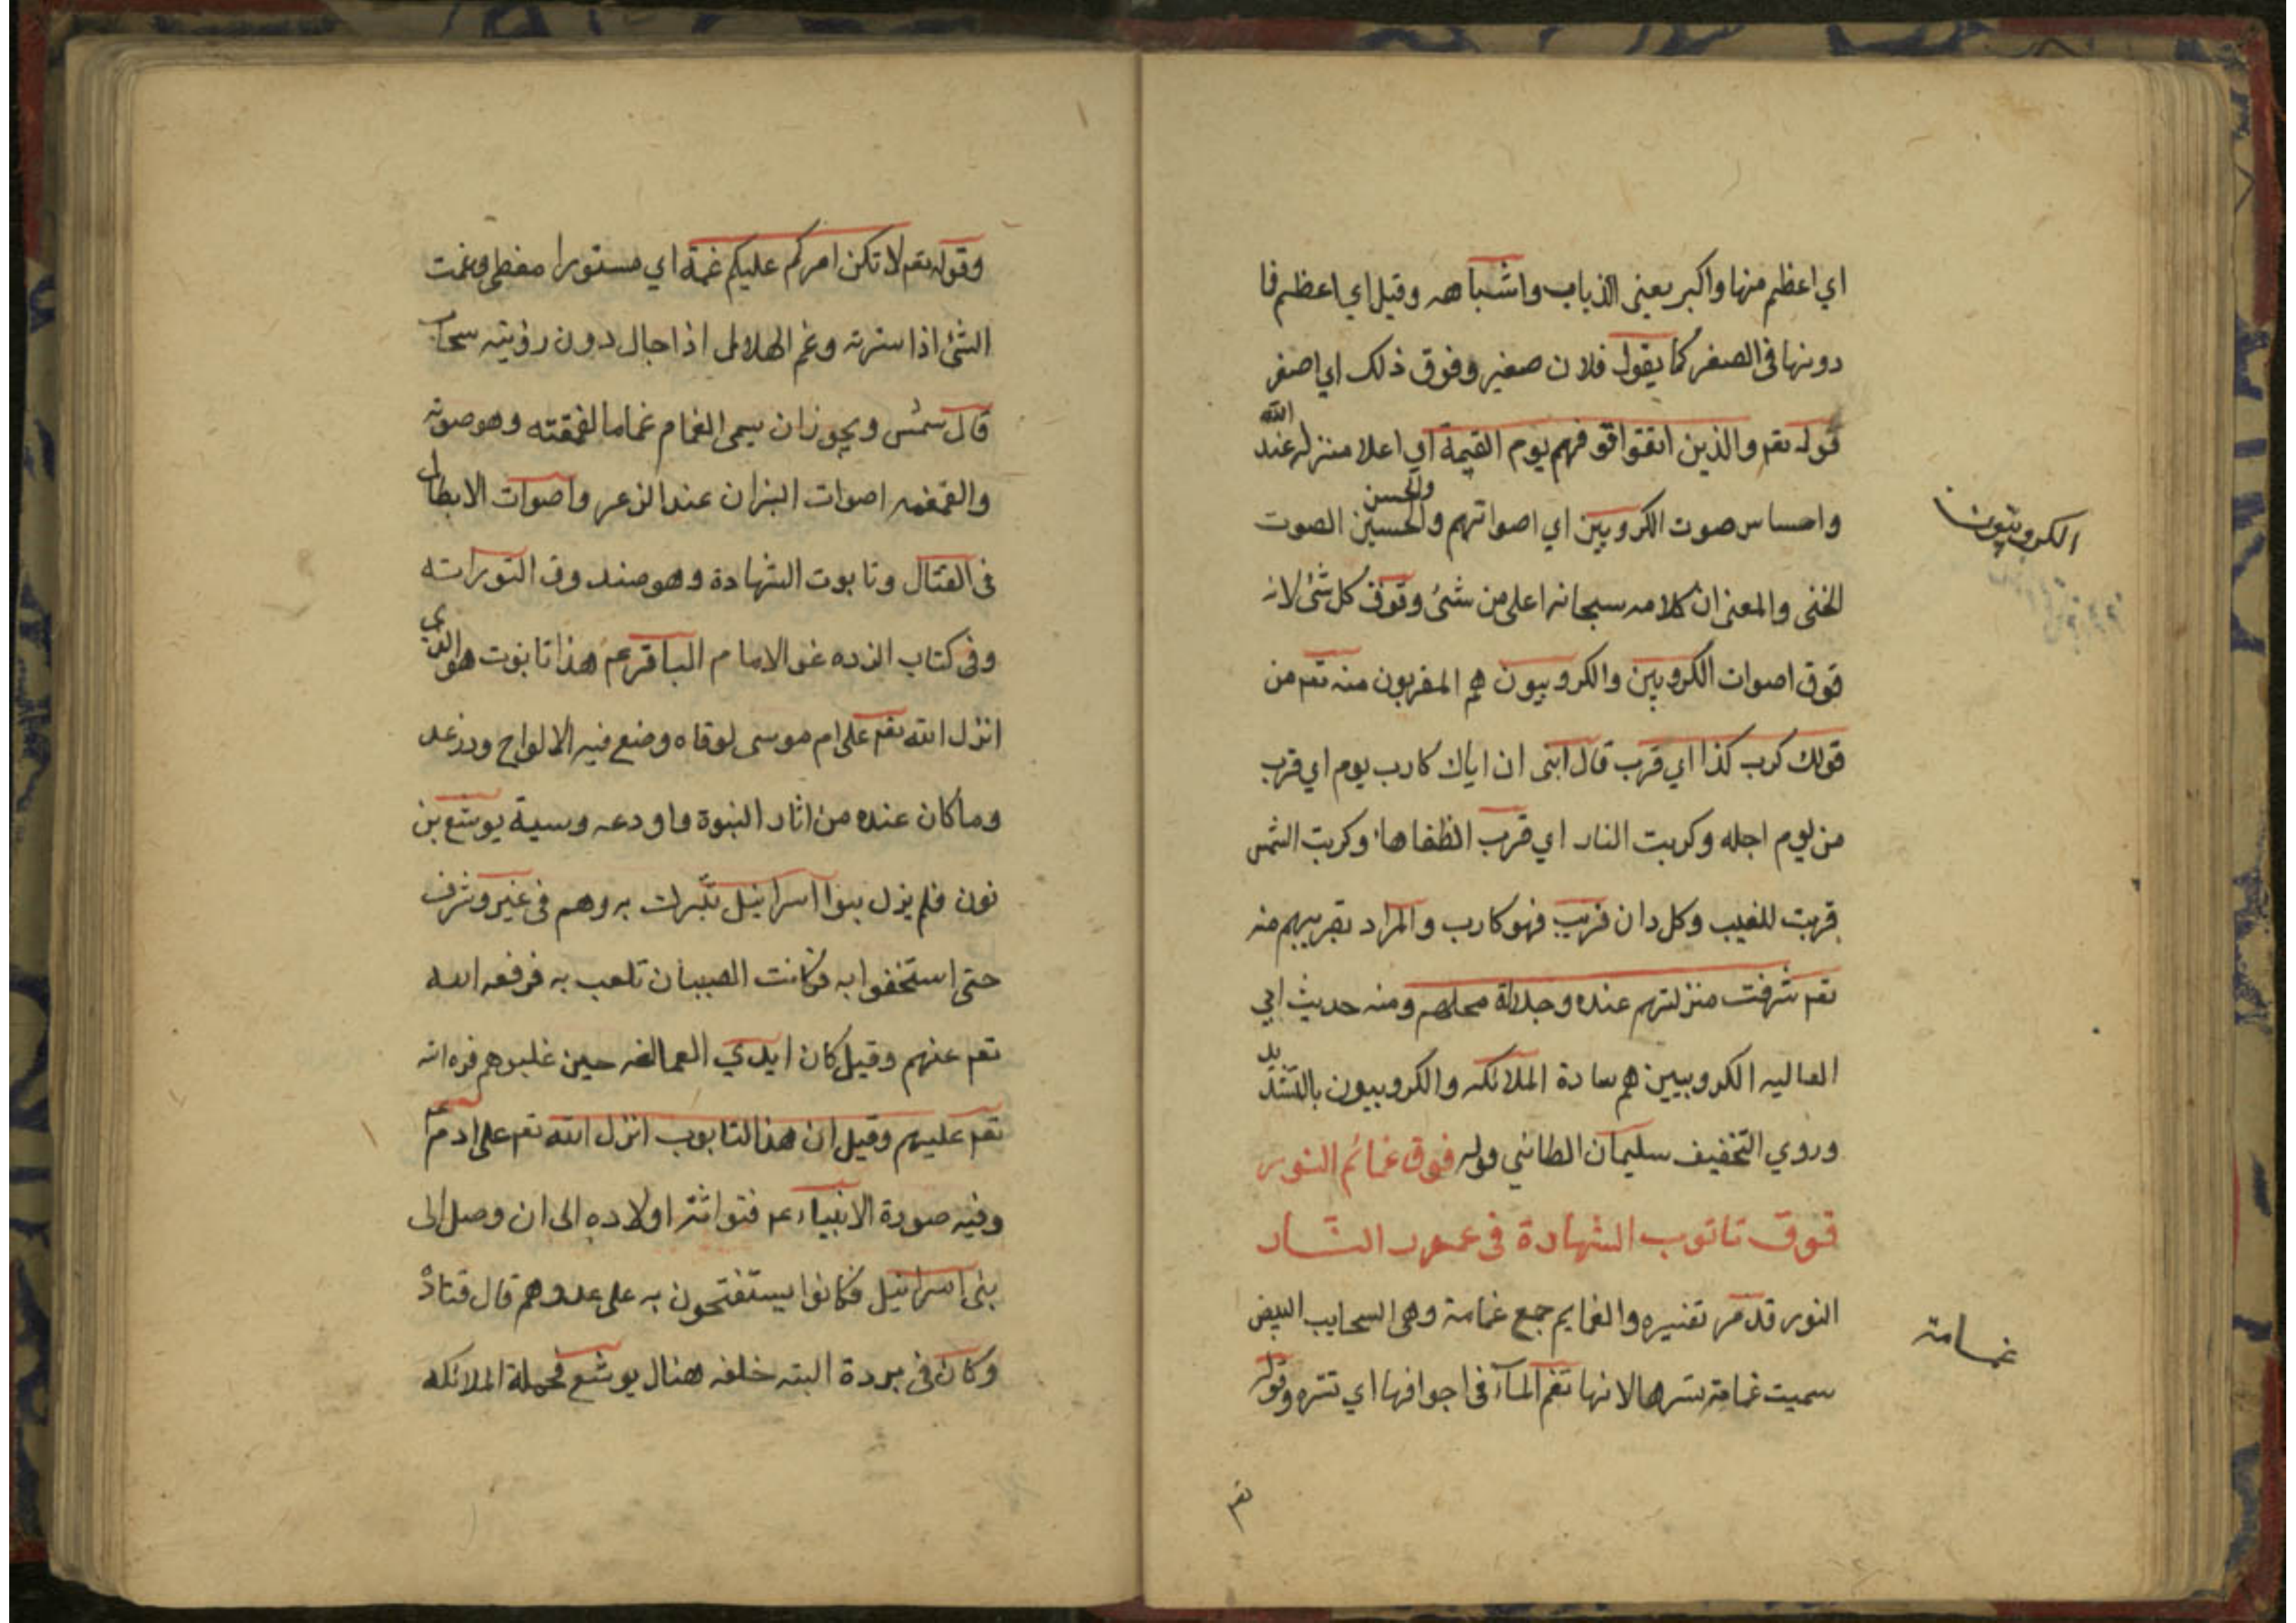 اي اعظم منها واكبر يعني الذباب واشباهه وقيل اي اعظم فا
دونها في الصغر كما يقول فلان صغير وفوق ذلك اي اصغر
قوله تعم والذين اتقوا فوقهم يوم القيمة اي اعلا منزله عند الله
واحساس صوت الكروبين اي اصواتهم والحسن والحسين الصوت
الخفي والمعنى ان كلامه سبحانه اعلى من شئ وفوق كل شئ لانه
فوق اصوات الكروبين والكروبيون هم المقربون منه تعم من
قولك كرب كذا اي قرب قال ابنى ان اباك كارب يوم اي قرب
من يوم اجله وكربت النار اي قرب انطفاها وكربت الشمس
قربت للمغيب وكل دان قريب فهو كارب والمراد تقريبهم منه
تعم شرفت منزلتهم عنده وجلالة محلهم ومنه حديث ابي
العاليه الكروبيين هم سادة الملائكه والكروبيون بالتشديد
وروي التخفيف سليمان الطائي قوله فوق غمائم النور
فوق تاتوب الشهادة في عمود النار
النور قد مر تفسيره والغمايم جمع غمامة وهي السحايب البيض
سميت غمامة لانها تغم المآء في اجوافها اي تستره وقوله
تعم
الكروبيون
غمامة
وقوله تعم لا تكن امركم عليكم غمة اي مستورا مغطى وغمت
الشئ اذا سترته وغم الهلال اذا حال دون رؤيته سحاب
قال شمس ويجوز ان يسمى الغمام غماما لغمغمته وهو صوته
والغمغمه اصوات الثيران عند الذعر واصوات الابطال
في القتال وتابوت الشهادة وهو صندوق التوراته
وفي كتاب الزده عن الامام الباقر عم هذا تابوت هو الذي
انزل الله تعم على ام موسى لوقاه وضع فيه الالواح ودرعه
وما كان عنده من اثار النبوة واودعه وسية يوشع بن
نون فلم يزل بنوا اسرائيل تبرك به وهم في عز وشرف
حتى استخفوا به فكانت الصبيان تلعب به فرفعه الله
تعم عنهم وقيل كان ايدي العمالقه حين غلبوهم فرده الله
تعم عليهم وقيل ان هذا التابوب انزل الله تعم على ادم عم
وفيه صورة الانبياء عم فتوارثه اولاده الى ان وصل الى
بني اسرائيل فكانوا يستفتحون به على عدوهم قال قتادة
وكان في بردة البته خلفه هنال يوشع فحملة الملائكه